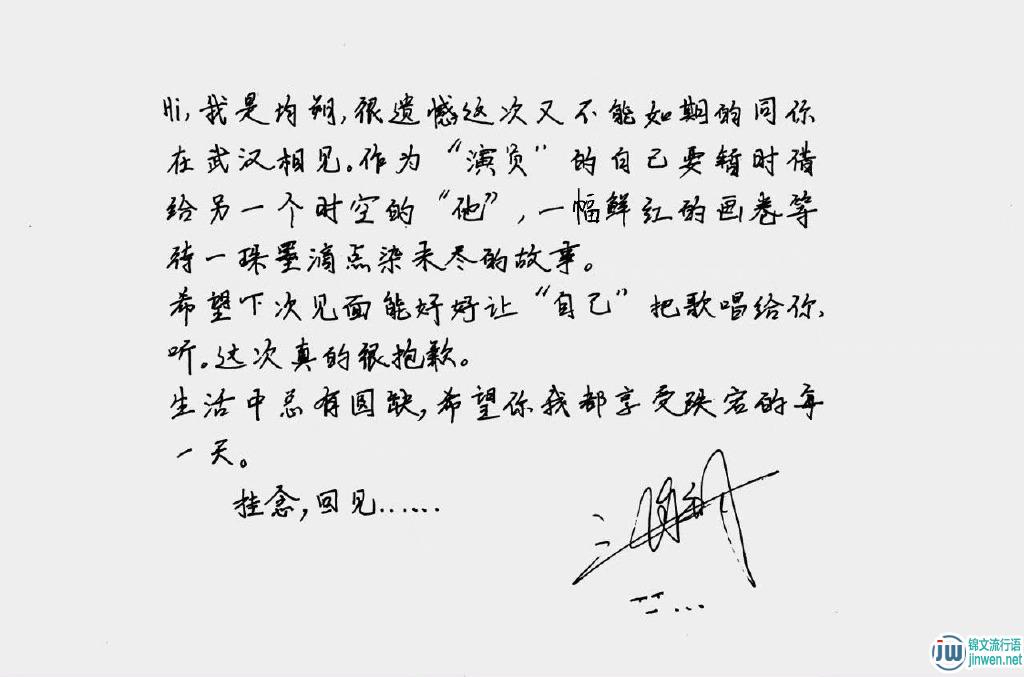 Hi,我是均朔,很遗憾这次又不能如期的同你
在武汉相见。作为“演员”的自己要暂时借
给另一个时空的“他”,一幅鲜红的画卷等
待一珠墨滴点染未尽的故事。
希望下次见面能好好让“自己”把歌唱给你
听。这次真的很抱歉。
生活中总有圆缺,希望你我都享受跌宕的每
一天。
挂念,回见......
JW
锦文流行语
jinwen.net